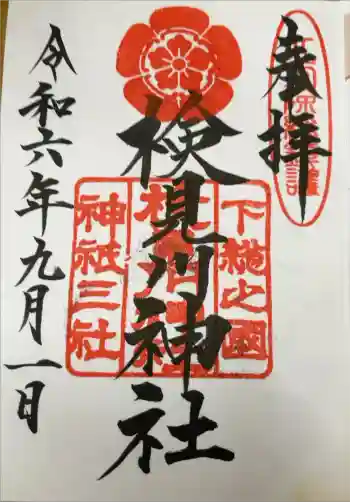 奉拝
検見川神社
令和六年九月一日
下総之國
神祇三社